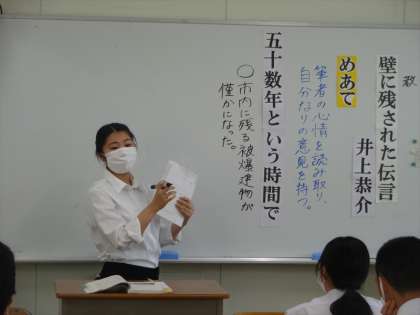 教
壁に残された伝言
井上恭介
めあて
筆者の心情を読み取り、
自分なりの意見を持つ。
五十数年という時間で
○市内に残る被爆建物が
僅かになった。